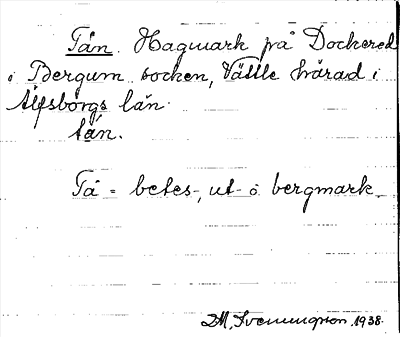 Tån. Hagmark på Dockered
i Bergum socken, Vättle härad i
Älfsborgs län.
tån.
Tå = betes-, ut- o. bergmark.
D.M. Svenningson. 1938.